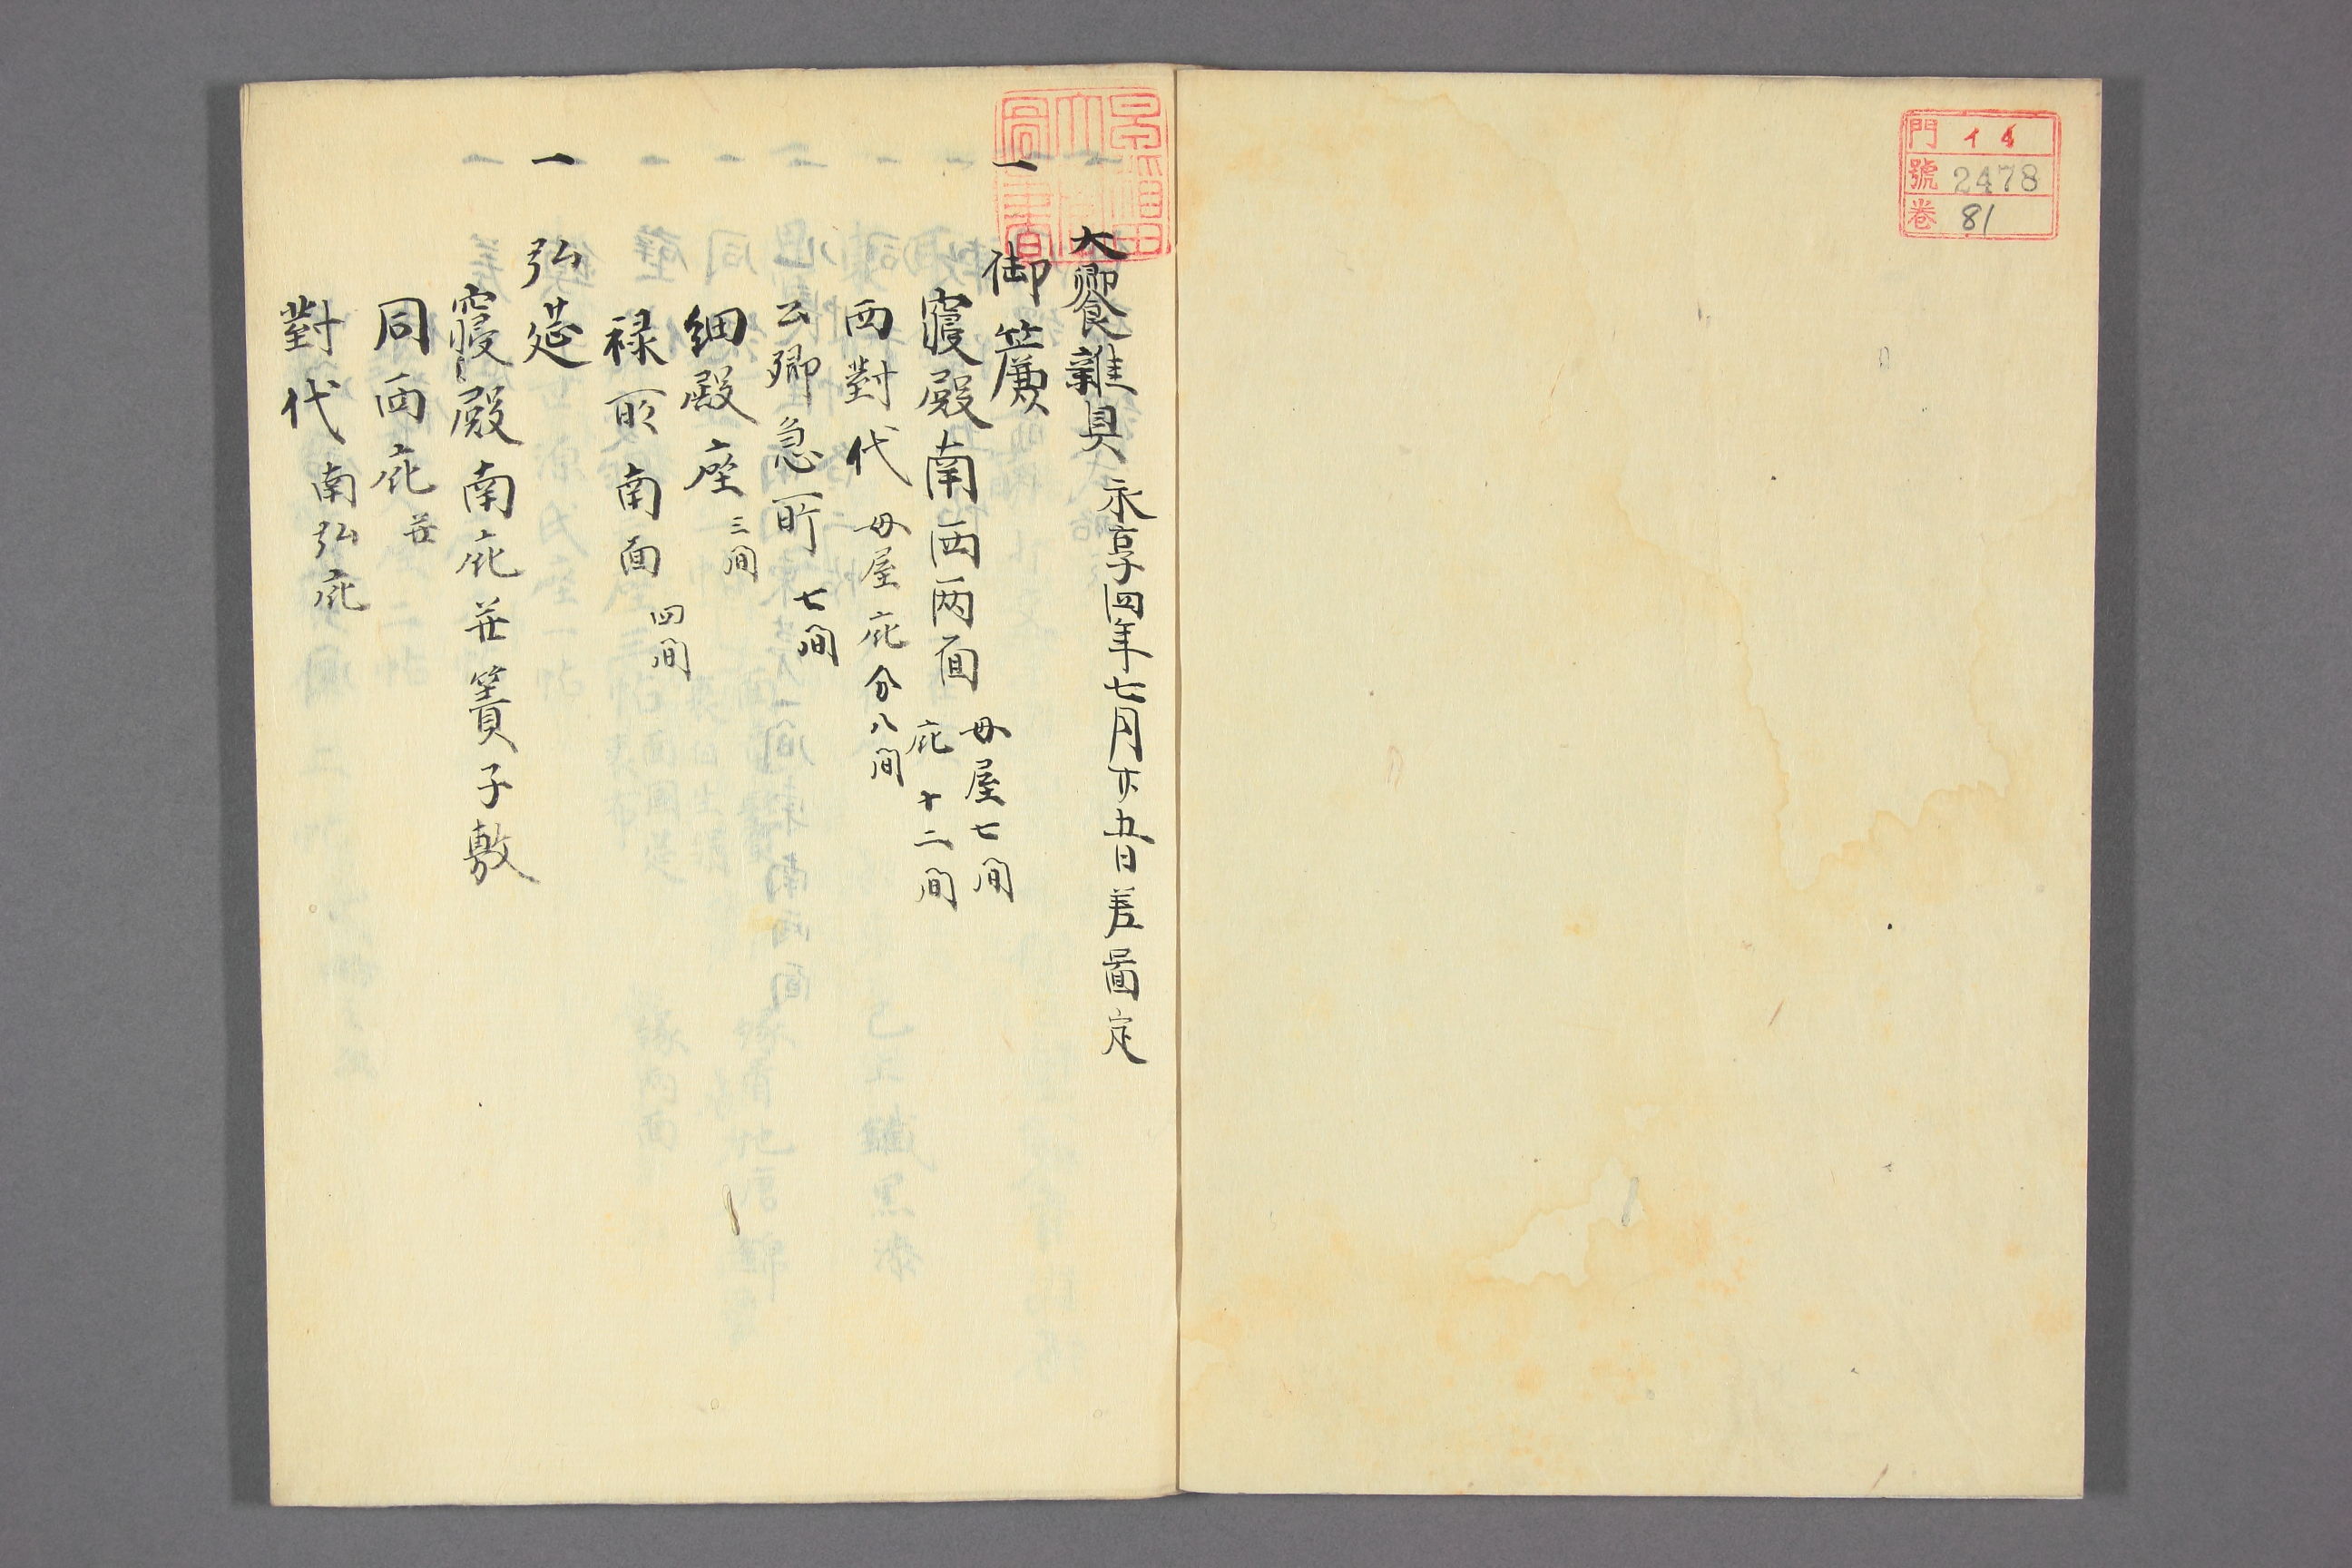 門 イ4
號 2478
卷 81
大饗雜具 永享四年七月廿五日差圖定
一 御簾
寝殿南西両面 母屋七間 庇十二間
西對代 母屋庇分八間
公卿急所 七間
細殿座 三間
禄所南面 四間
一 弘莚
寝殿南庇并簀子敷
同西庇 并
對代 南弘庇